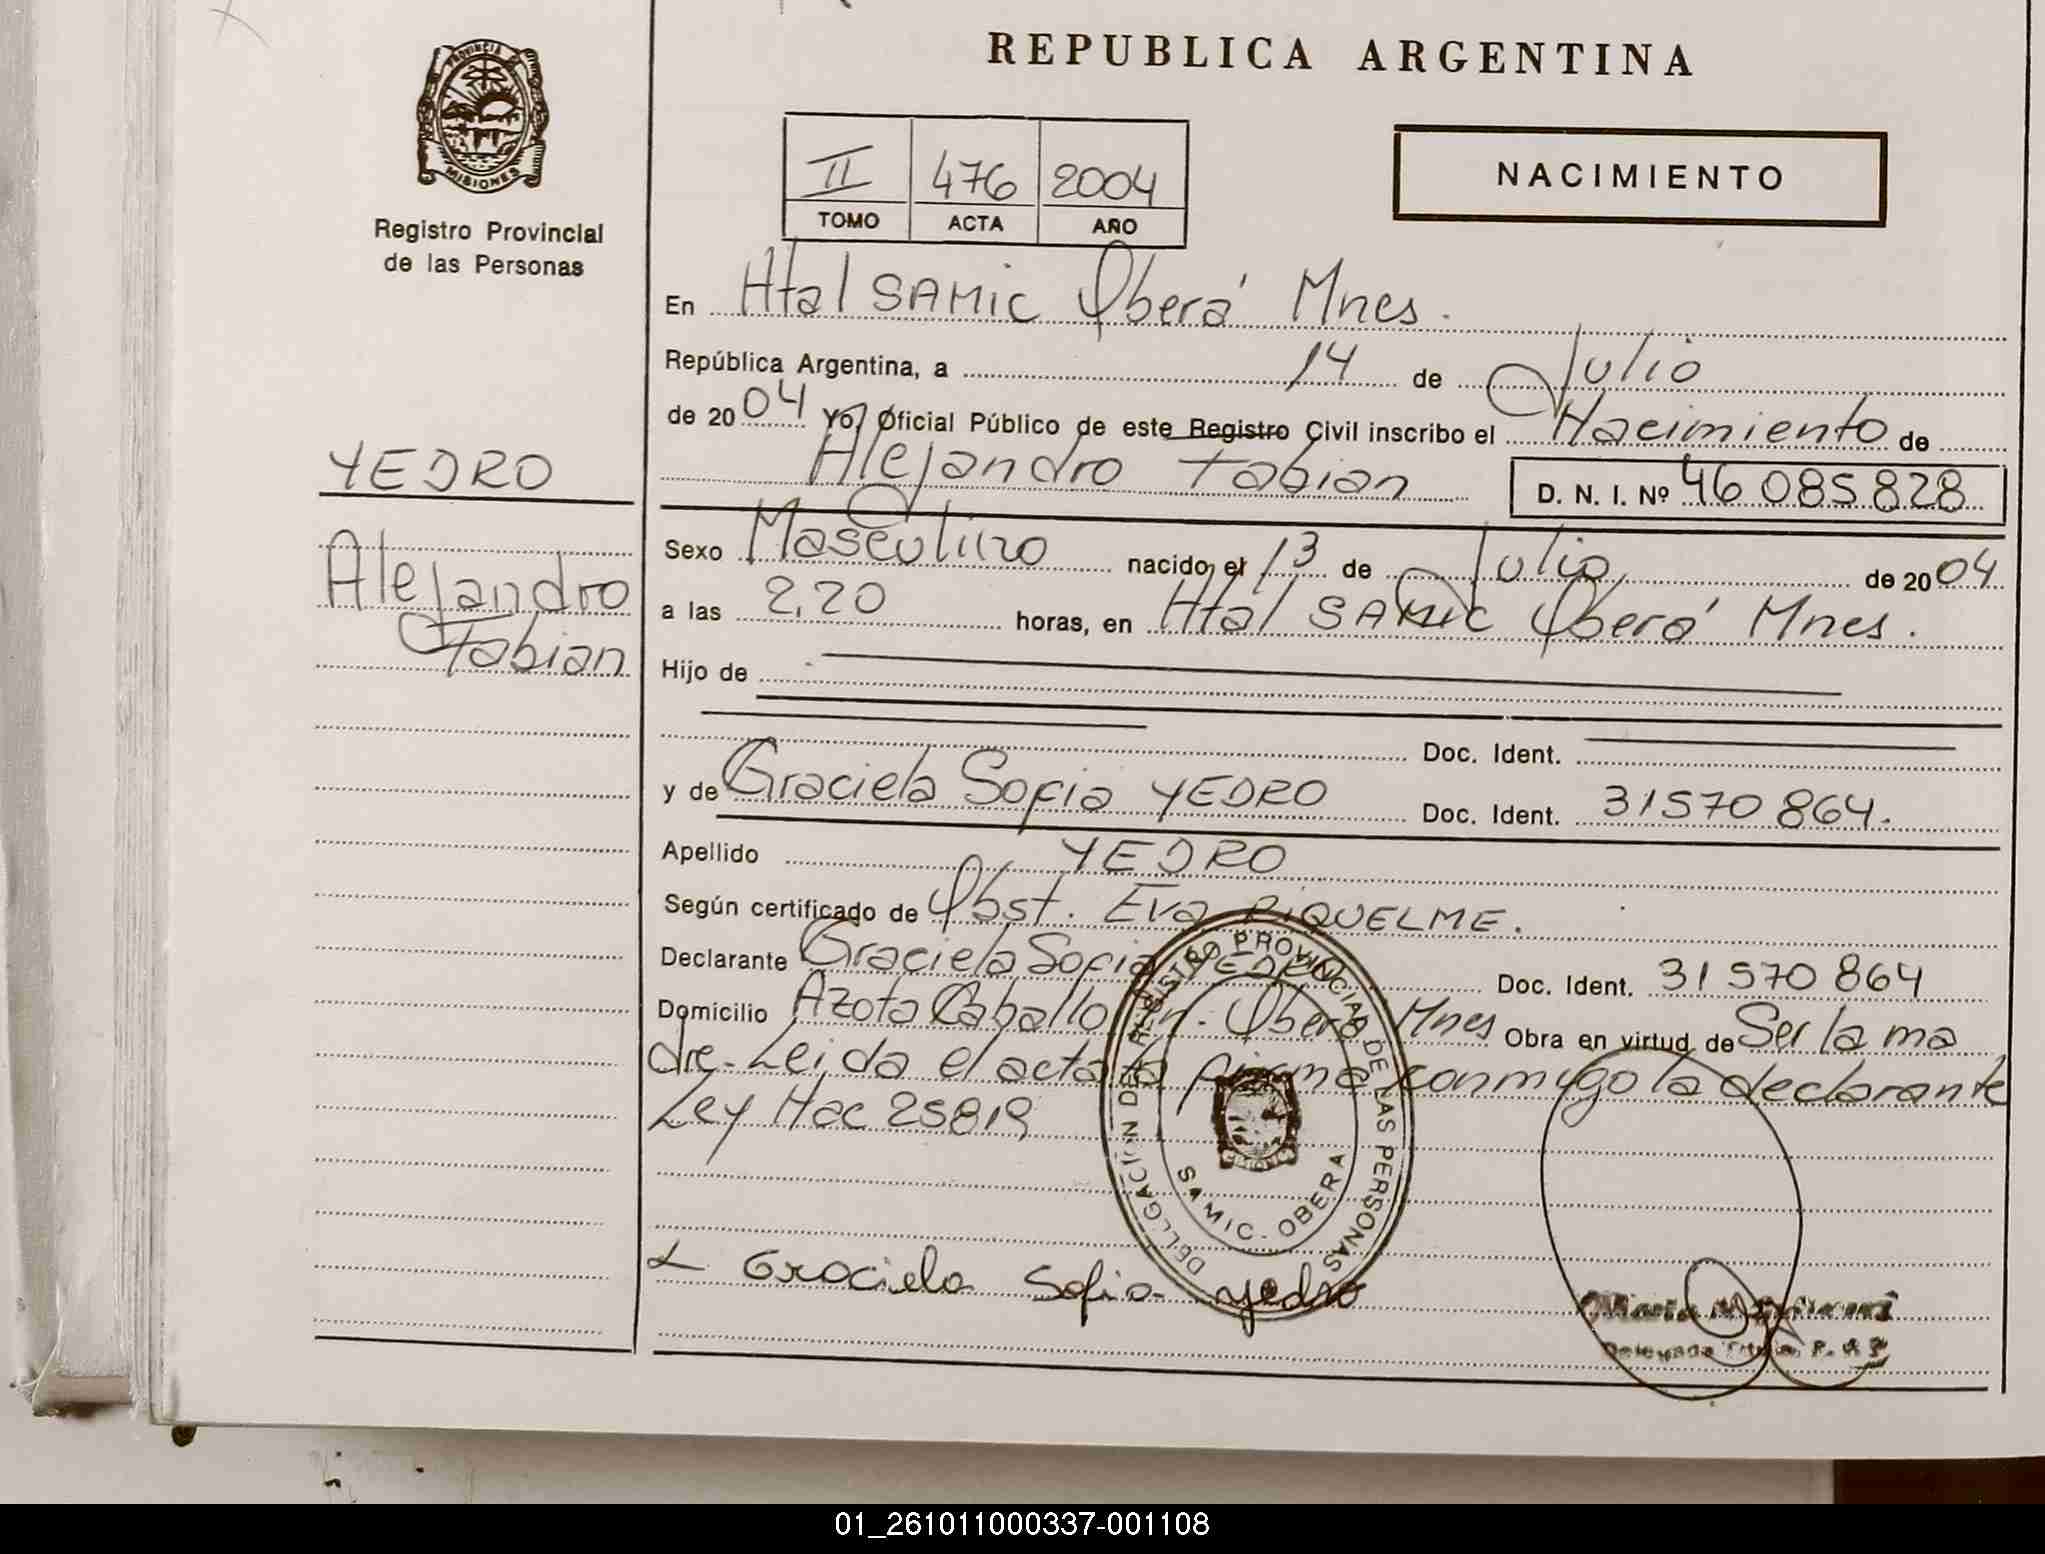 REPUBLICA ARGENTINA
PROVINCIA
MISIONES
Registro Provincial
de las Personas
II 476 2004
TOMO ACTA AÑO
NACIMIENTO
En Htal SAMIC Oberá Mnes.
República Argentina, a 14 de Julio
de 2004 Yo, Oficial Público de este Registro Civil inscribo el Nacimiento de
Alejandro Fabian D. N. I. Nº 46 085 828
YEDRO
Alejandro
Fabian
Sexo Masculino nacido el 13 de Julio de 2004
a las 2,20 horas, en Htal SAMIC Oberá Mnes.
Hijo de
Doc. Ident.
y de Graciela Sofia YEDRO Doc. Ident. 31570 864.
Apellido YEDRO
Según certificado de Obst. Eva RIQUELME.
Declarante Graciela Sofia YEDRO Doc. Ident. 31 570 864
Domicilio Azota Caballo Oberá Mnes Obra en virtud de Ser la ma
dre- Leida el acta la firma conmigo la declarante
Ley Nac 25819
DELEGACION DEL REGISTRO PROVINCIAL DE LAS PERSONAS
SAMIC - OBERA
Graciela Sofia yedro
Delegada Titular
01_261011000337-001108